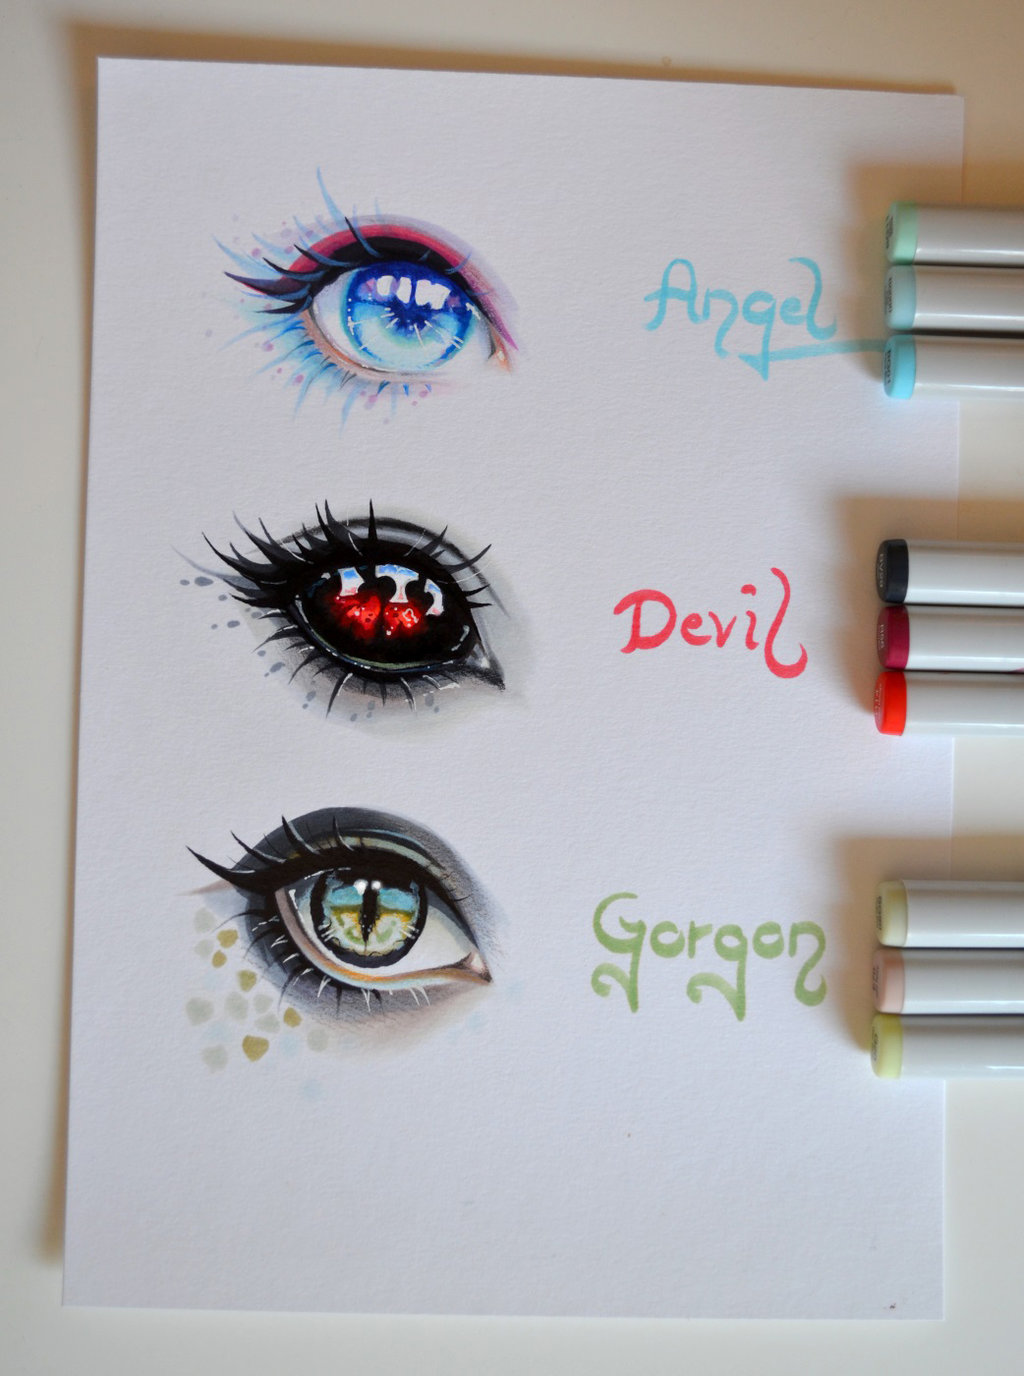 Angel
Devil
Gorgon